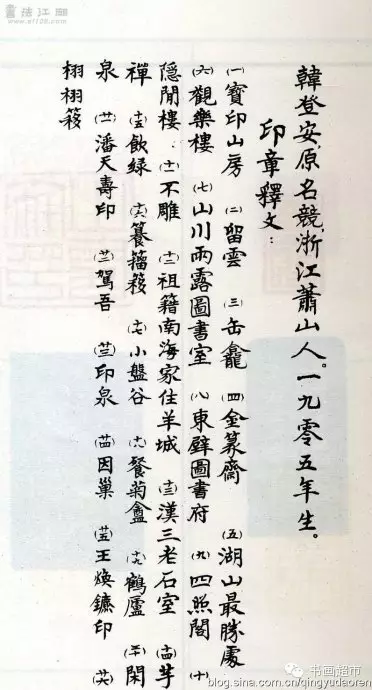 韓登安,原名競,浙江蕭山人。一九零五年生。
印章釋文:
(一)寶印山房 (二)留雲 (三)缶龕 (四)金篆齋 (五)湖山最勝處
(六)觀樂樓 (七)山川雨露圖書室 (八)東壁圖書府 (九)四照閣 (十)
隱閒樓 (十一)不雕 (十二)祖籍南海家住羊城 (十三)漢三老石室 (十四)芋
禪 (十五)飲綠 (十六)籑籀簃 (十七)小盤谷 (十八)餐菊盦 (十九)鶴廬 (二十)閑
泉 (廿一)潘天壽印 (廿二)駕吾 (廿三)印泉 (廿四)因巢 (廿五)王煥鑣印 (廿六)
栩栩簃
書法江湖
书画超市
blog.sina.com.cn/qingyudaoren